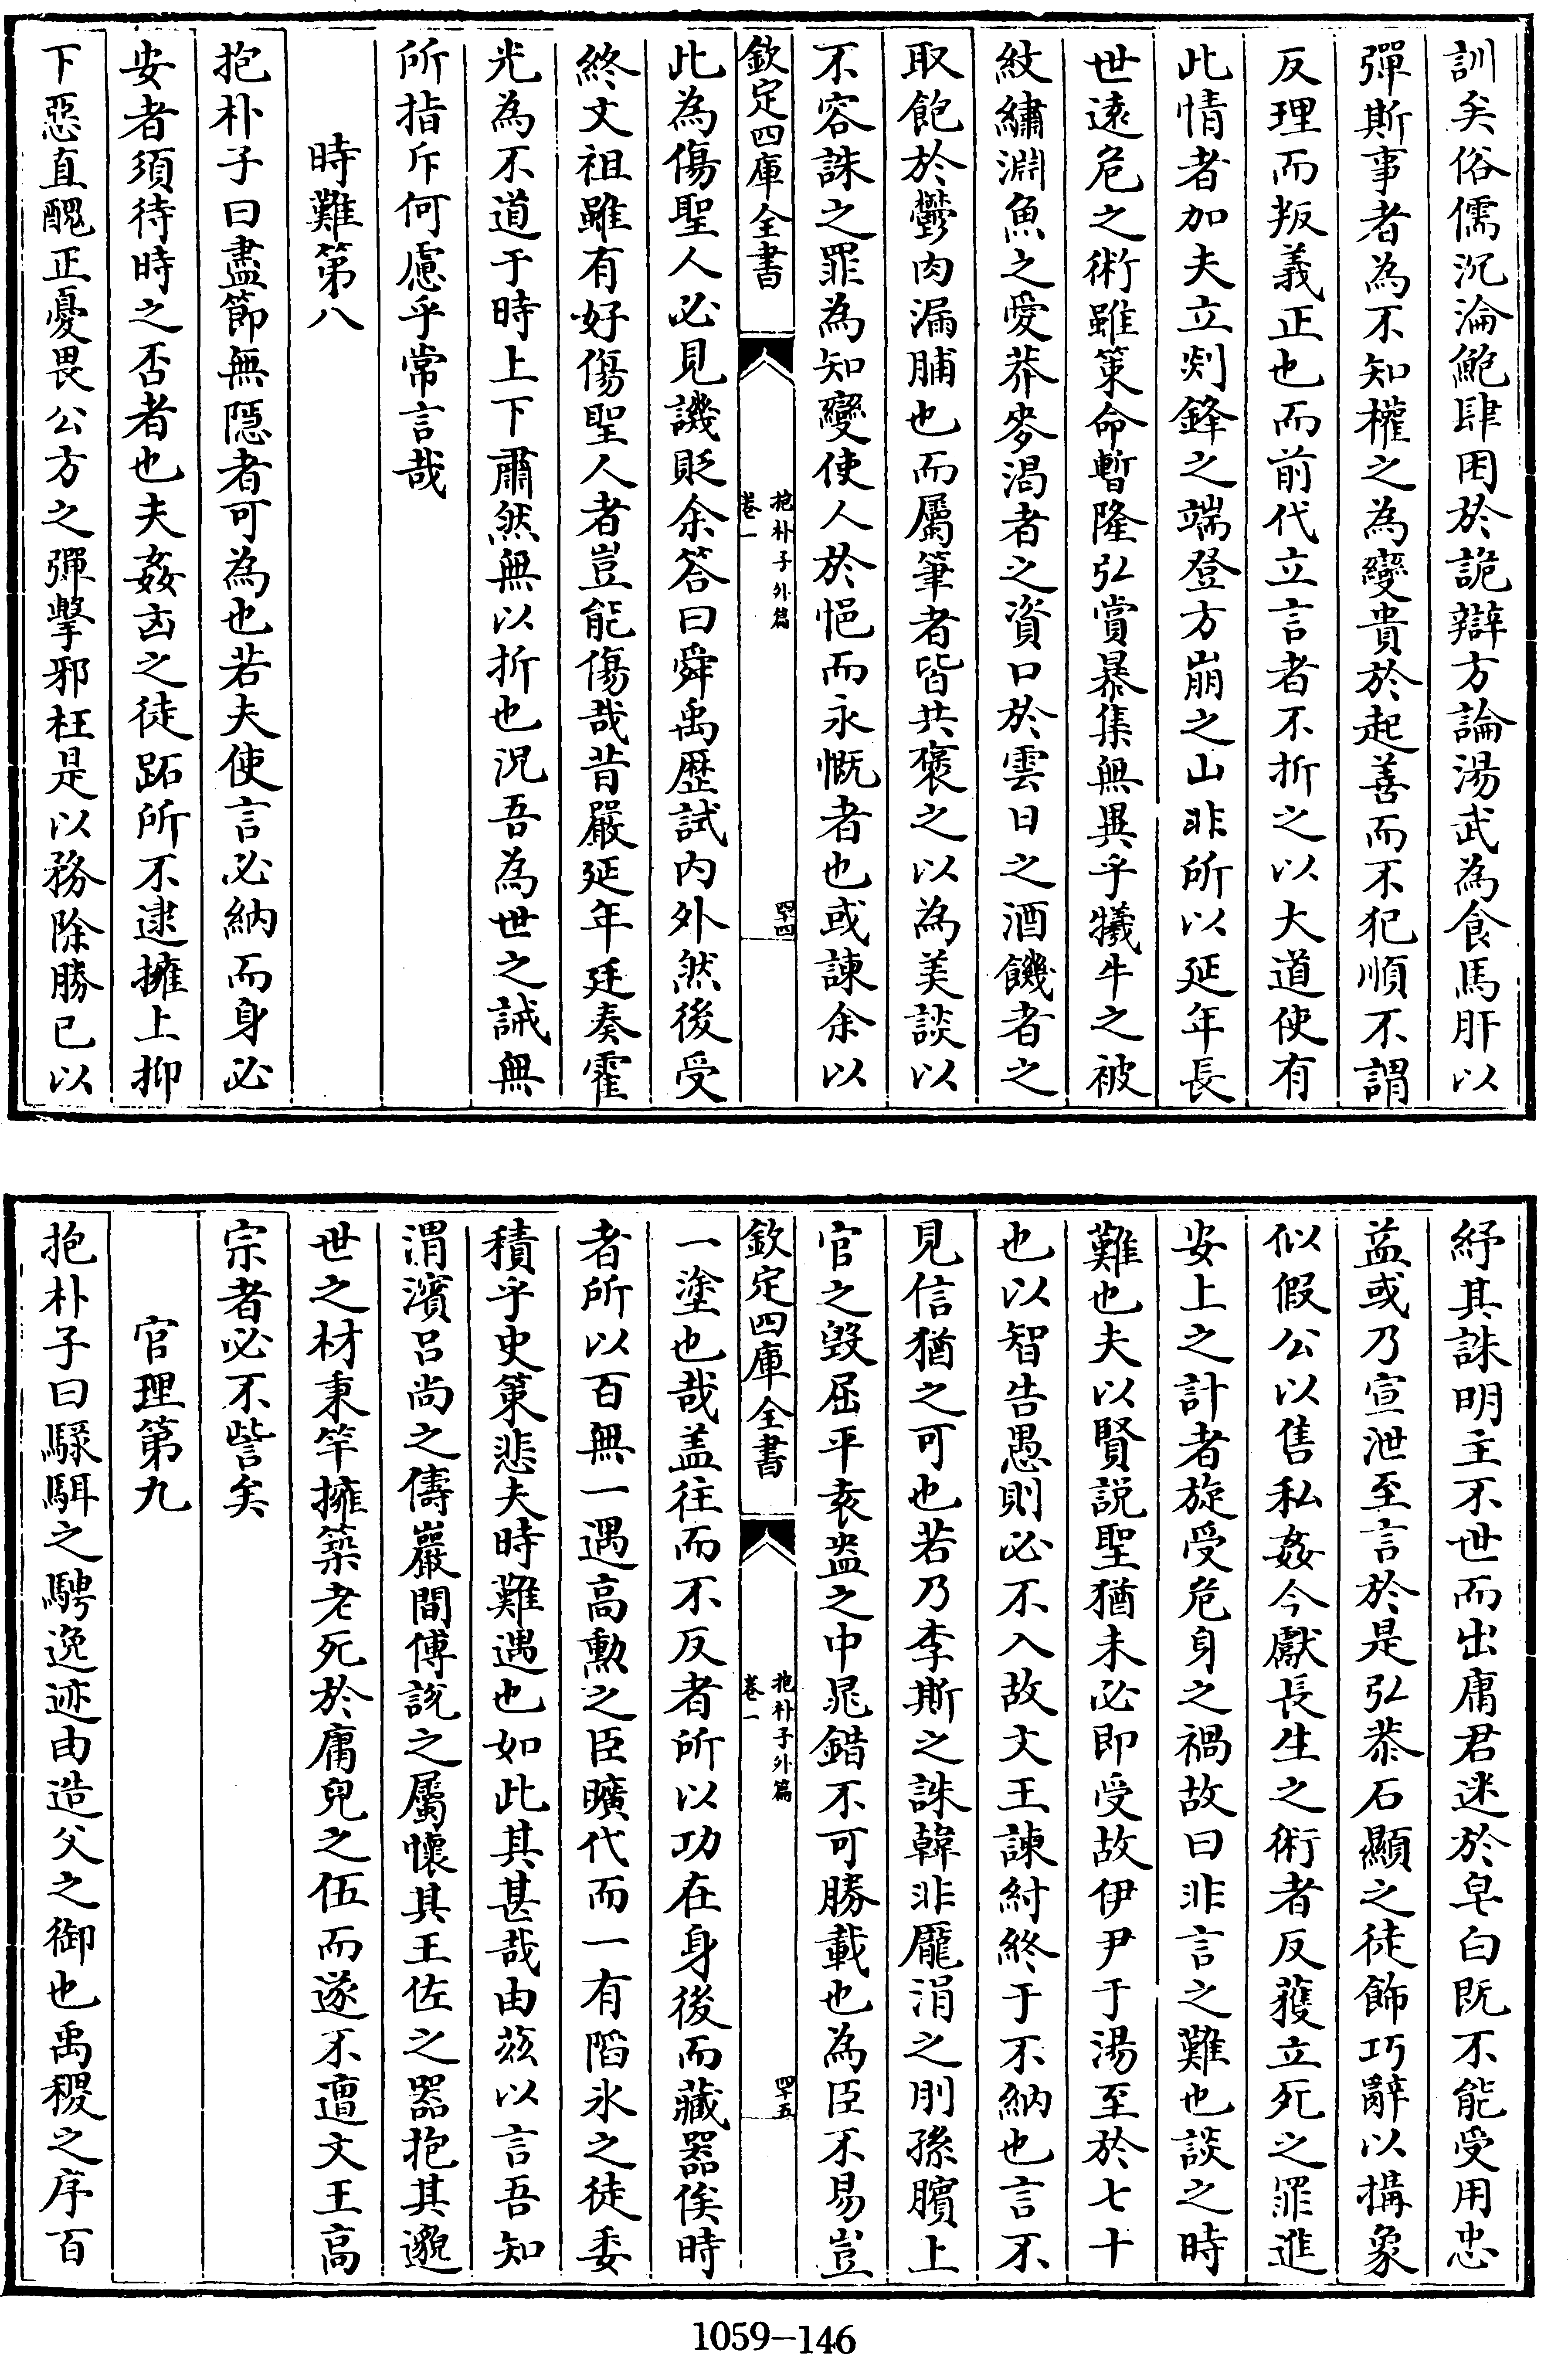 訓矣俗儒沉淪鮑肆困於詭辯方論湯武為食馬肝以
彈斯事者為不知權之為變貴於起善而不犯順不謂
反理而叛義正也而前代立言者不折之以大道使有
此情者加夫立剡鋒之端登方崩之山非所以延年長
世遠危之術雖策命暫隆弘賞暴集無異乎犧牛之被
紋繡淵魚之愛莽麥渴者之資口於雲日之酒饑者之
取飽於鬱肉漏脯也而屬筆者皆共褒之以為美談以
不容誅之罪為知變使人於悒而永慨者也或諫余以
欽定四庫全書
抱朴子外篇
卷一
四十四
此為傷聖人必見譏貶余答曰舜禹歷試內外然後受
終文祖雖有好傷聖人者豈能傷哉昔嚴延年廷奏霍
光為不道于時上下肅然無以折也況吾為世之誡無
所指斥何慮乎常言哉
時難第八
抱朴子曰盡節無隱者可為也若夫使言必納而身必
安者須待時之否者也夫姦凶之徒跖所不逮擁上抑
下惡直醜正憂畏公方之彈擊邪枉是以務除勝己以
紓其誅明主不世而出庸君迷於皁白既不能受用忠
益或乃宣泄至言於是弘恭石顯之徒飾巧辭以搆象
似假公以售私姦今獻長生之術者反獲立死之罪進
安上之計者旋受危身之禍故曰非言之難也談之時
難也夫以賢説聖猶未必即受故伊尹于湯至於七十
也以智告愚則必不入故文王諫紂終于不納也言不
見信猶之可也若乃李斯之誅韓非龐涓之刖孫臏上
官之毀屈平袁盎之中晁錯不可勝載也為臣不易豈
欽定四庫全書
抱朴子外篇
卷一
四十五
一塗也哉盖往而不反者所以功在身後而藏器俟時
者所以百無一遇高勲之臣曠代而一有陷氷之徒委
積乎史策悲夫時難遇也如此其甚哉由茲以言吾知
渭濱呂尚之儔巖間傅説之屬懷其王佐之器抱其邈
世之材秉竿擁築老死於庸兒之伍而遂不遭文王高
宗者必不訾矣
官理第九
抱朴子曰騄駬之騁逸迹由造父之御也禹稷之序百
1059—146